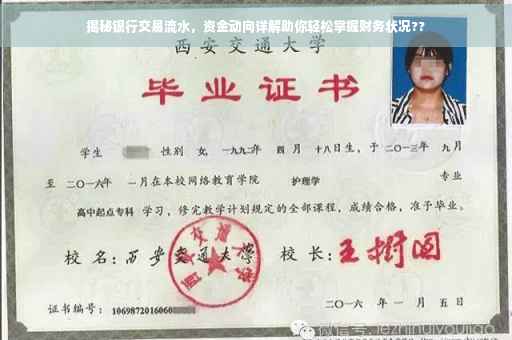 揭秘银行交易流水，资金动向详解助你轻松掌握财务状况??
西安交通大学
毕业证书
学生 性别 女，一九九二年 四月 十八日生，于二〇一三年 九月
至 二〇一六年 一月在本校网络教育学院 护理学 专业
高中起点专科 学习，修完教学计划规定的全部课程，成绩合格，准予毕业。
校 名：西安交通大学 校 长：王树国
西安交通大学
证书编号：1069872016060
二〇一六 年 一 月 五 日
微信号: jiezhinuiyoujiao